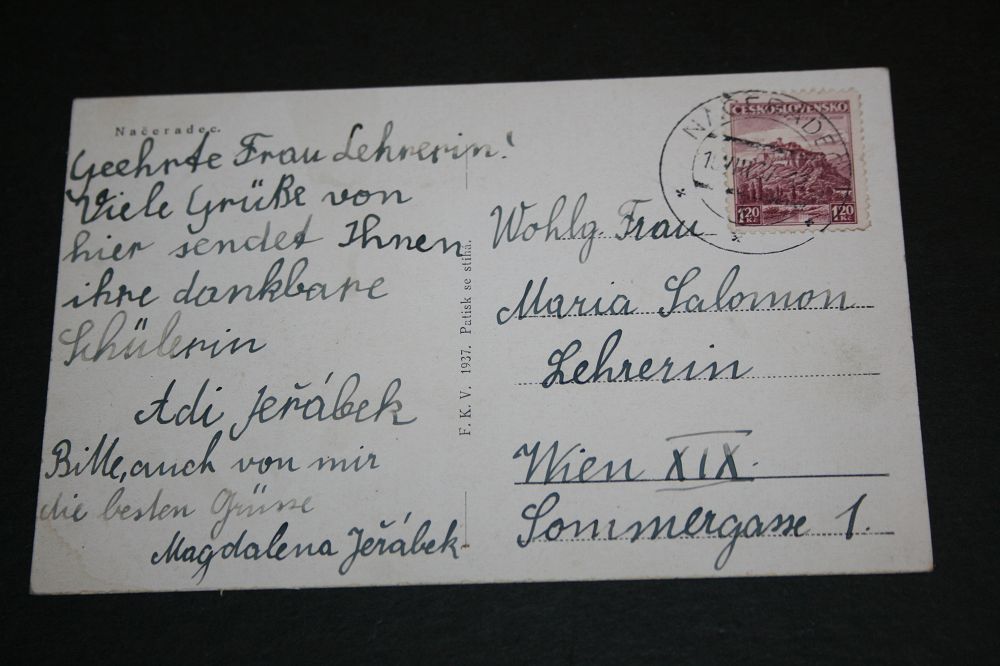 Načeradec.
Geehrte Frau Lehrerin!
Viele Grüße von
hier sendet Ihnen
ihre dankbare
Schülerin
Adi Jeřábek
Bitte, auch von mir
die besten Grüsse
Magdalena Jeřábek
F. K. V. 1937. Patisk se stíhá.
NAČERADEC
ČESKOSLOVENSKO
1.20 Kč
1.20 Kč
Wohlg. Frau
Maria Salomon
Lehrerin
Wien XIX.
Sommergasse 1.